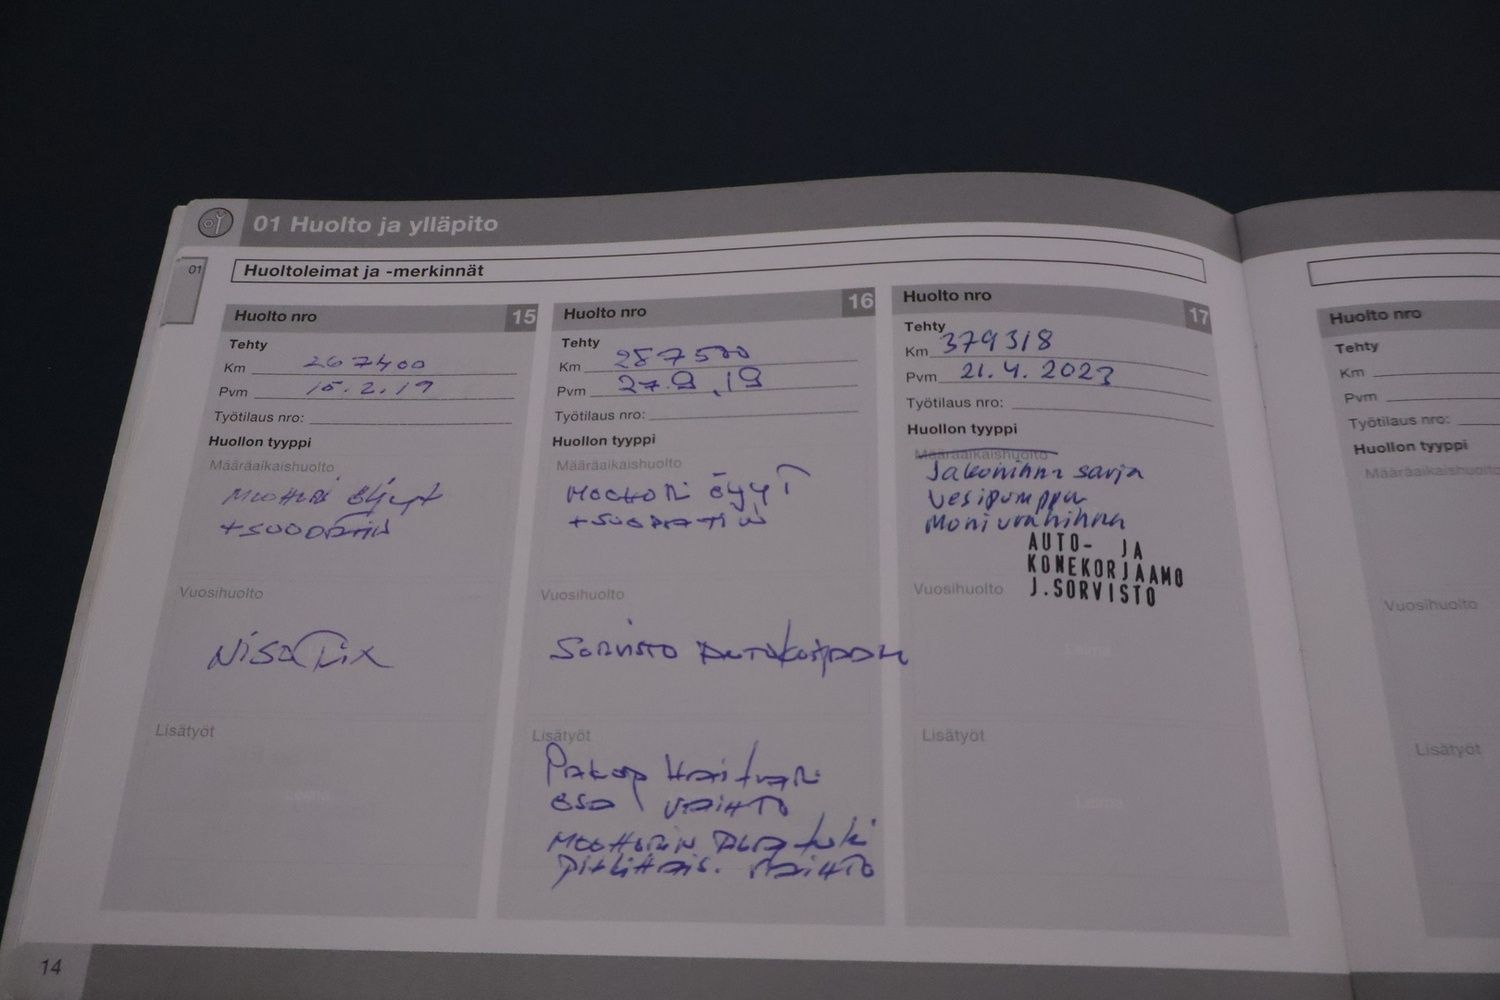 01 Huolto ja ylläpito
01
Huoltoleimat ja -merkinnät
Huolto nro 15
Tehty
Km 267400
Pvm 15.2.19
Työtilaus nro:
Huollon tyyppi
Määräaikaishuolto
Moottori öljyt
+ suodatin
Vuosihuolto
Lisätyöt
Leima
Huolto nro 16
Tehty
Km 287500
Pvm 27.9.19
Työtilaus nro:
Huollon tyyppi
Määräaikaishuolto
Moottori öljyT
+ suodatin
Vuosihuolto
Sorvisto
Lisätyöt
osa vaihto
moottorin
vaihto
Huolto nro 17
Tehty
Km 379318
Pvm 21.4.2023
Työtilaus nro:
Huollon tyyppi
Määräaikaishuolto
Jakohihna sarja
Vesipumppu
Moniurahihna
AUTO- JA
KONEKORJAAMO
J.SORVISTO
Vuosihuolto
Leima
Lisätyöt
Leima
Huolto nro
Tehty
Km
Pvm
Työtilaus nro:
Huollon tyyppi
Määräaikaishuolto
Vuosihuolto
Lisätyöt
14